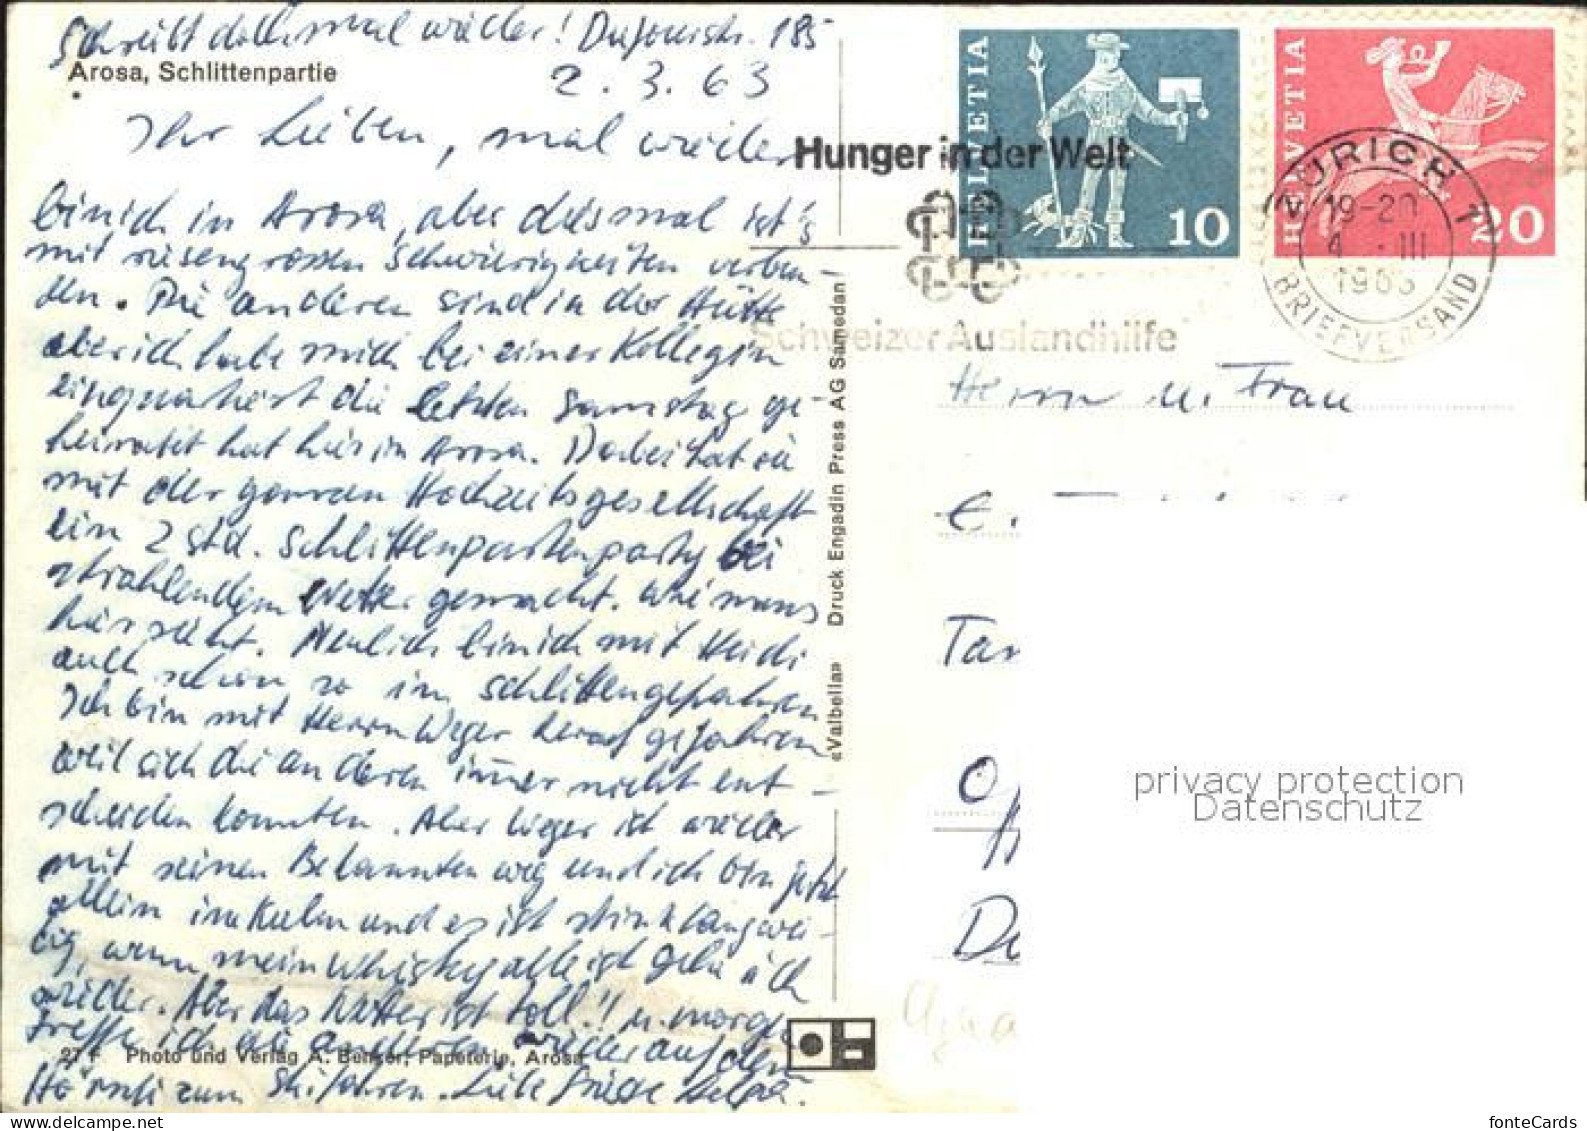 Schreibt doch mal wieder! Dufourstr. 185
Arosa, Schlittenpartie
2. 3. 63
Ihr Lieben, mal wieder
bin ich in Arosa, aber diesmal ist's
mit riesengrossen Schwierigkeiten verbun-
den. Die anderen sind in der Hütte
aber ich habe mich bei einer Kollegin
einquartiert die letzten Samstag ge-
heiratet hat hier in Arosa. Dabei hat sie
mit der ganzen Hochzeitsgesellschaft
ein 2 std. Schlittenpartenparty bei
strahlendem Wetter gemacht. Wie mans
hier sieht. Neulich bin ich mit Heidi
auch schon so im Schlittengefahren
Ich bin mit Herrn Weger herauf gefahren
weil sich die anderen immer nicht ent-
scheiden konnten. Aber Weger ist wieder
mit seinen Bekannten weg und ich bin jetzt
allein im Kulm und es ist stinklangwei-
lig, wenn mein Whisky alle ist gehe ich
wieder. Aber das Wetter ist toll!! u. morgen
treffe ich die anderen wieder auf dem
Hörnli zum Skifahren. Liebe Grüsse Helga.
27 F Photo und Verlag A. Benker, Papeterie, Arosa
«Valbella» Druck Engadin Press AG Samedan
HELVETIA
10
HELVETIA
20
Hunger in der Welt
Schweizer Auslandhilfe
ZÜRICH 1
19-20
4. III
1963
BRIEFVERSAND
Herrn u. Frau
E.
privacy protection
Datenschutz
fonteCards